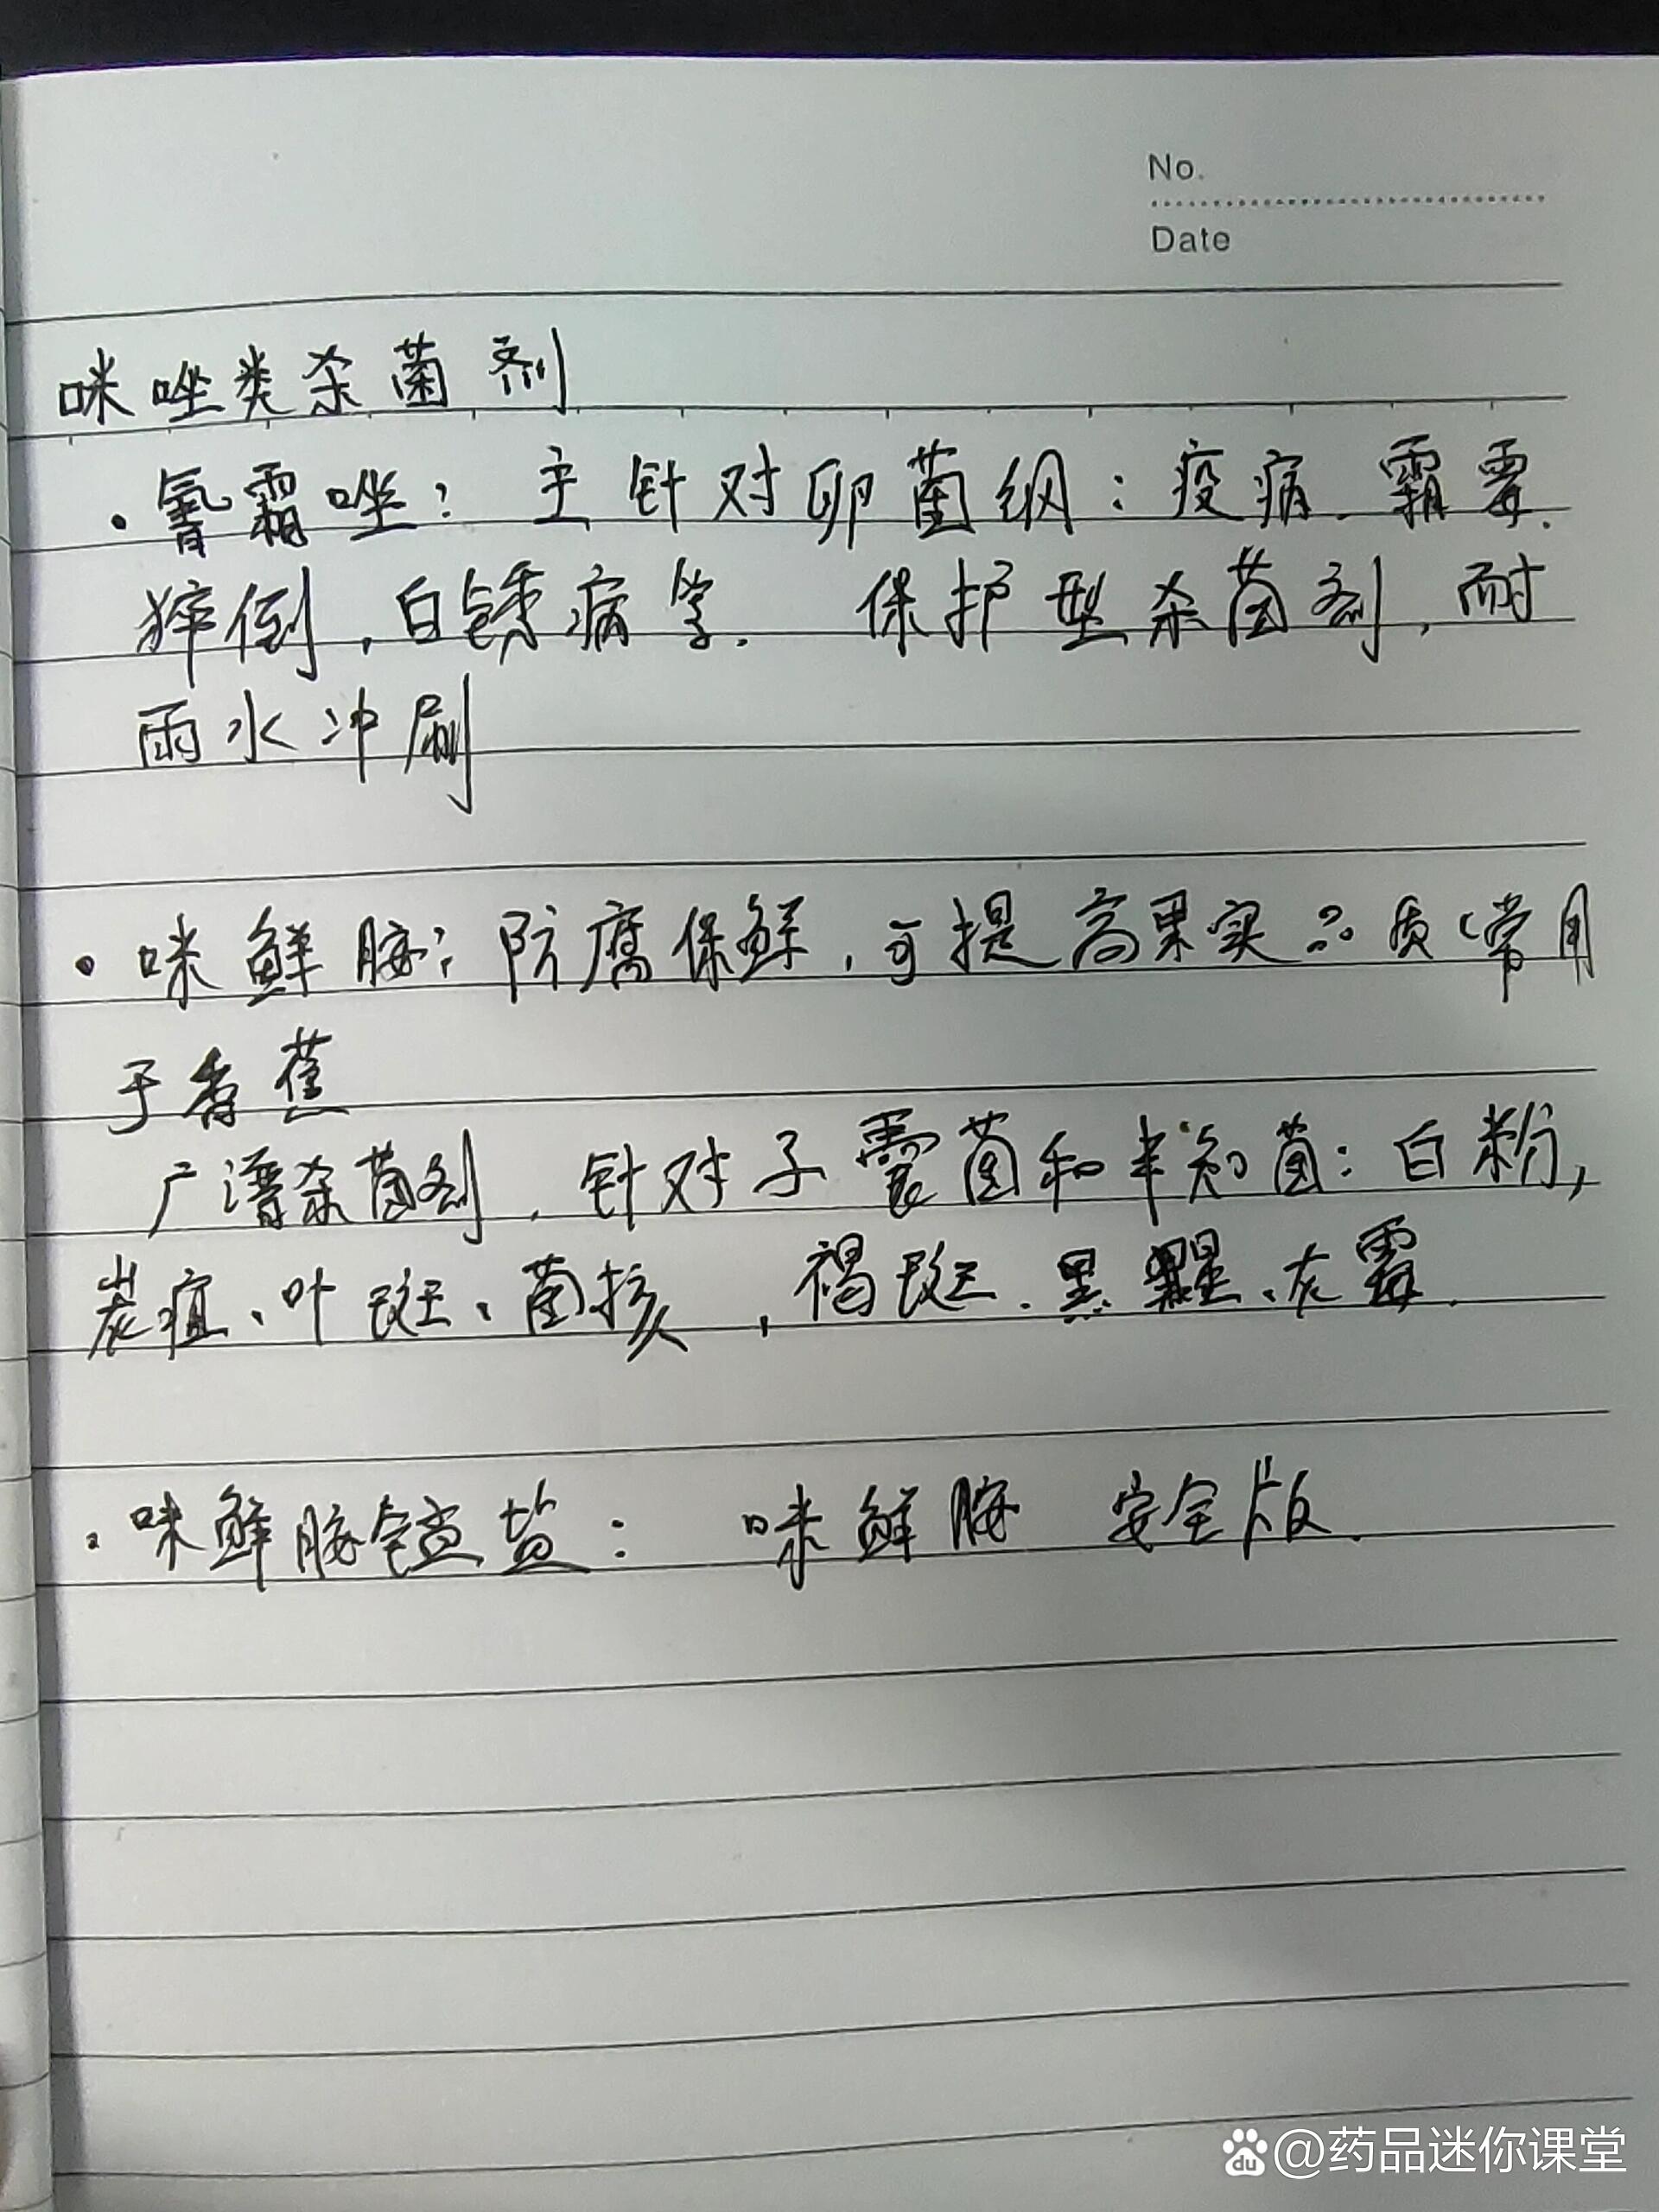 No.
Date
咪唑类杀菌剂
·氰霜唑：主针对卵菌纲：疫病、霜霉.
猝倒，白锈病等. 保护型杀菌剂，耐
雨水冲刷
·咪鲜胺：防腐保鲜，可提高果实品质（常用
于香蕉
广谱杀菌剂，针对子囊菌和半知菌：白粉，
炭疽、叶斑、菌核，褐斑、黑星、灰霉.
·咪鲜胺锰盐：咪鲜胺 安全版.
du @药品迷你课堂